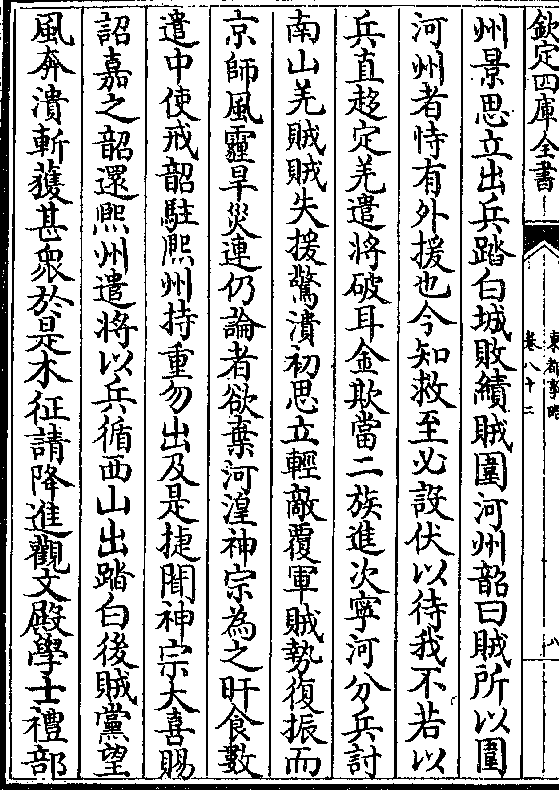 欽定四庫全書
東都事略
卷八十二
八
州景思立出兵踏白城敗績賊圍河州韶曰賊所以圍
河州者恃有外援也今知救至必設伏以待我不若以
兵直趍定羌遣將破耳金欺當二族進次寧河分兵討
南山羌賊賊失援驚潰初思立輕敵覆軍賊勢復振而
京師風霾旱災連仍論者欲棄河湟神宗為之旰食數
遣中使戒韶駐熈州持重勿出及是捷聞神宗大喜賜
詔嘉之韶還熈州遣將以兵循西山出踏白後賊黨望
風奔潰斬獲甚衆於是木征請降進觀文殿學士禮部